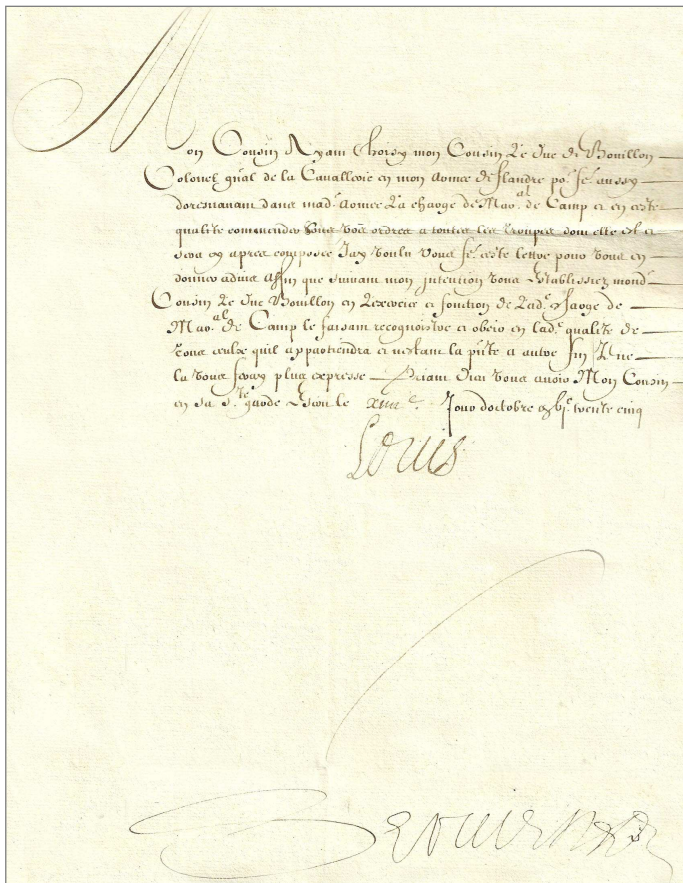 Mon Cousin Ayant Choisy mon Cousin Le Duc de Bouillon
Colonel gñal de la Cavallerie en mon armee de flandre poʳ feʳ aussy
doresnavant dans madᵉ armee La charge de Marᵃˡ de Camp et en ceste
qualité commender soubz voz ordres a toutes les trouppes dont elle est et
sera cy apres composée Jay voulu vous feʳ ceste lettre pour vous en
donner advis affin que suivant mon intention vous Establissiez mondᵗ
Cousin Le Duc Bouillon en Lexercice et fonction de Ladᵉ charge de
Marᵃˡ de Camp le faisant recognoistre et obeir en ladᵉ qualité de
tous ceulx quil appartiendra et nestant la pñte a autre fin Je ne
la vous feray plus expresse Priant Dieu vous avoir Mon Cousin
en sa Sᵗᵉ garde Escrit le xiiiiᵉ Jour doctobre trente cinq
Louis